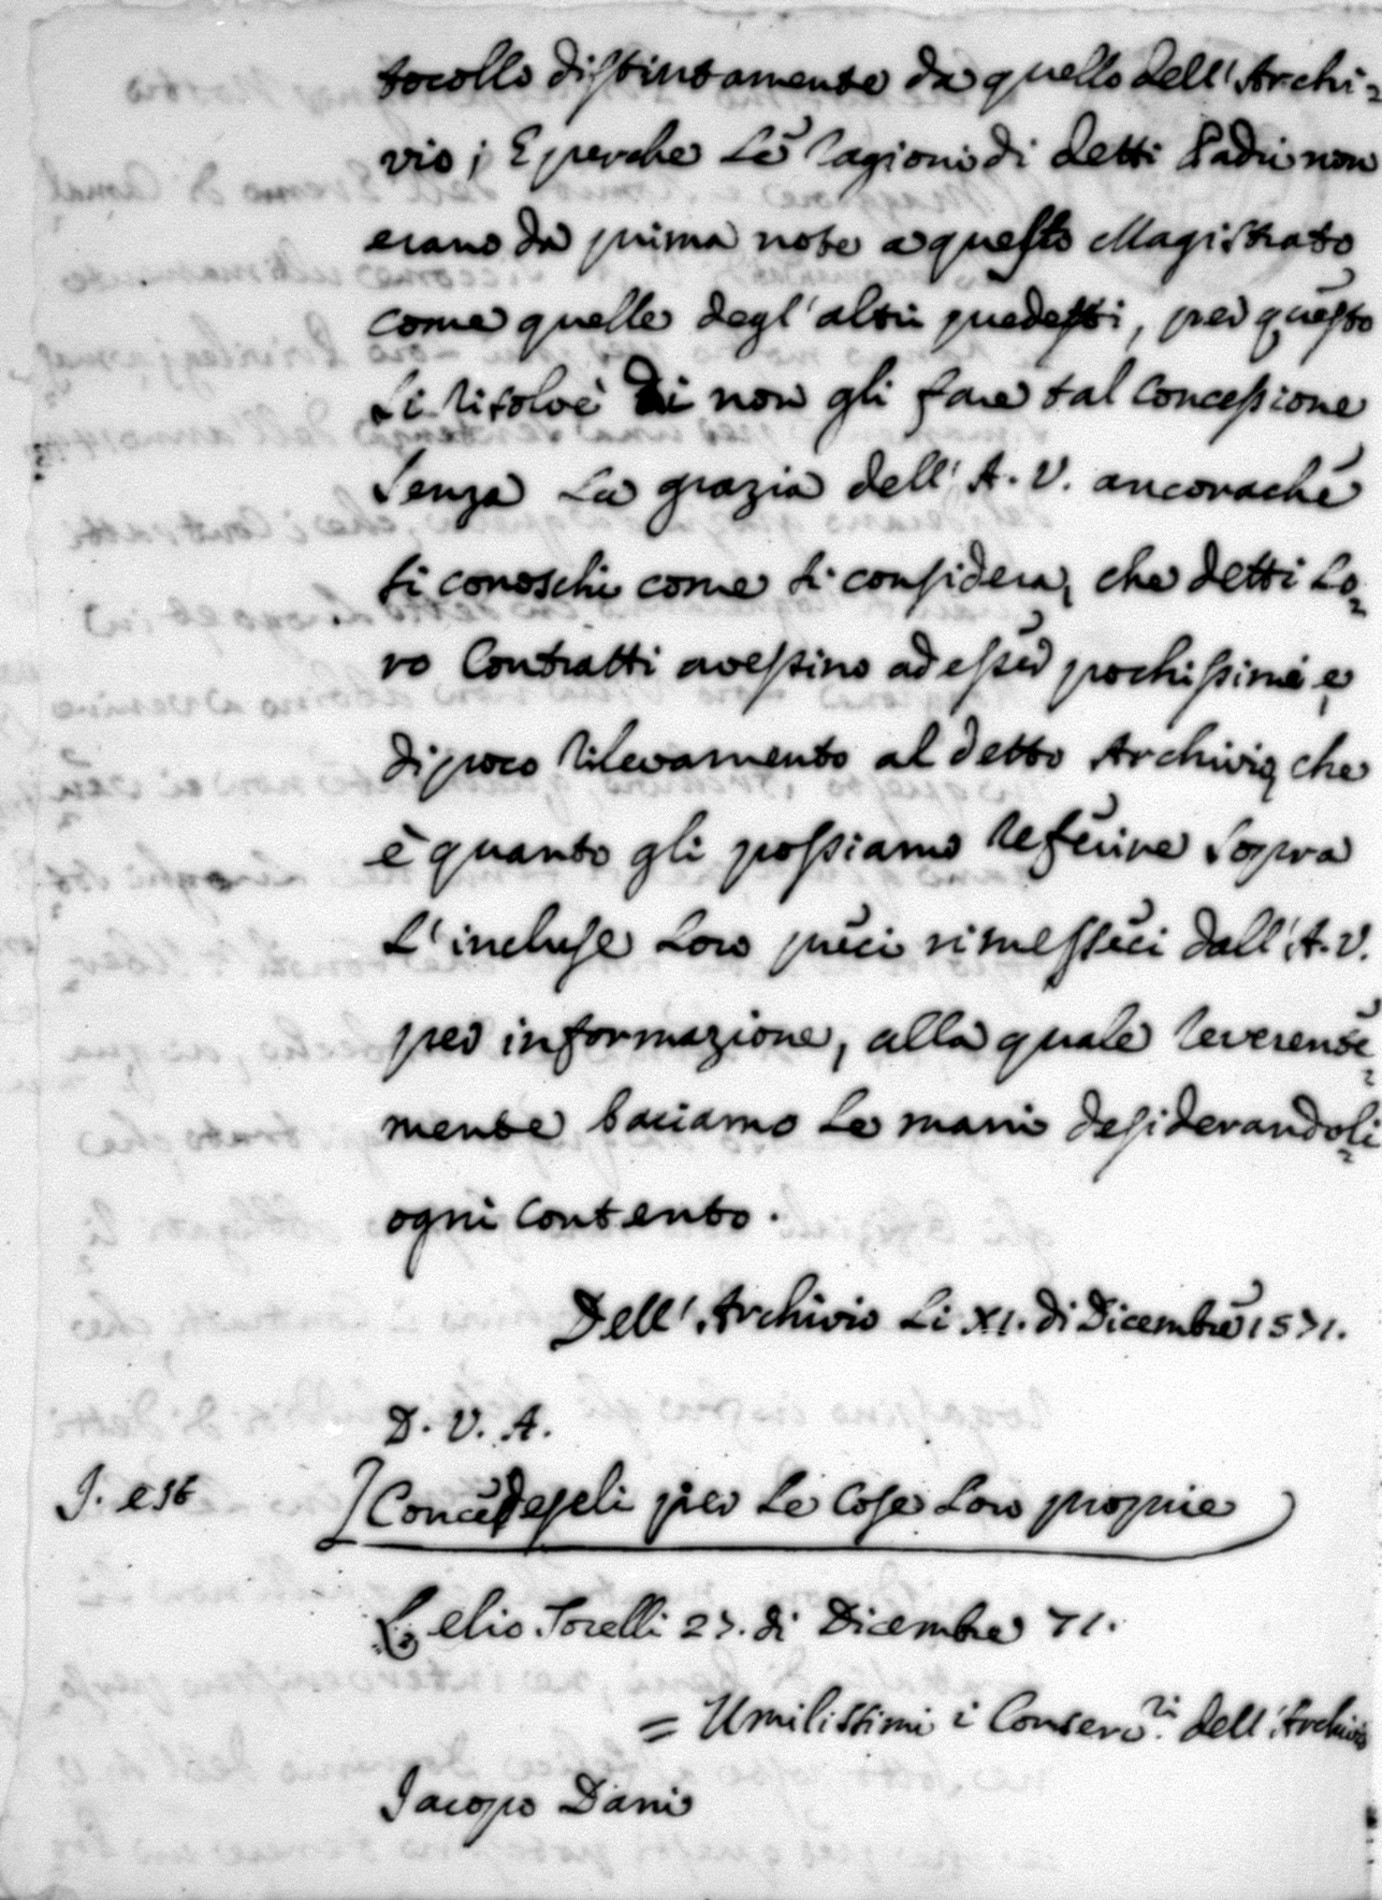 tocollo distintamente da quello dell'Archi=
vio; E perche Le ragioni di detti Padri non
erano da prima note a questo Magistrato
come quelle degl'altri predetti, per questo
si risolvé di non gli fare tal Concessione
senza La grazia dell'A. V. ancorache
si conoschi come si considera, che detti Lo=
ro Contratti avessino ad esser pochissimi e
di poco rilevamento al detto Archivio, che
è quanto gli possiamo referire sopra
L'incluse Loro preci rimesseci dall'A. V.
per informazione, alla quale reverente=
mente baciamo Le mani desiderandoli
ogni Contento.
Dell'Archivio Li XI. di Dicembre 1571.
D. V. A.
J. est
Concedeseli per Le Cose Loro proprie
Lelio Torelli 27. di Dicembre 71.
= Umilissimi i Conserv.ri dell'Archivio
Jacopo Dani